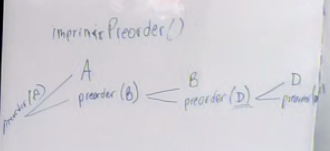 imprimirPreorder()
A
preorder(A)
preorder(B)
B
preorder(D)
D